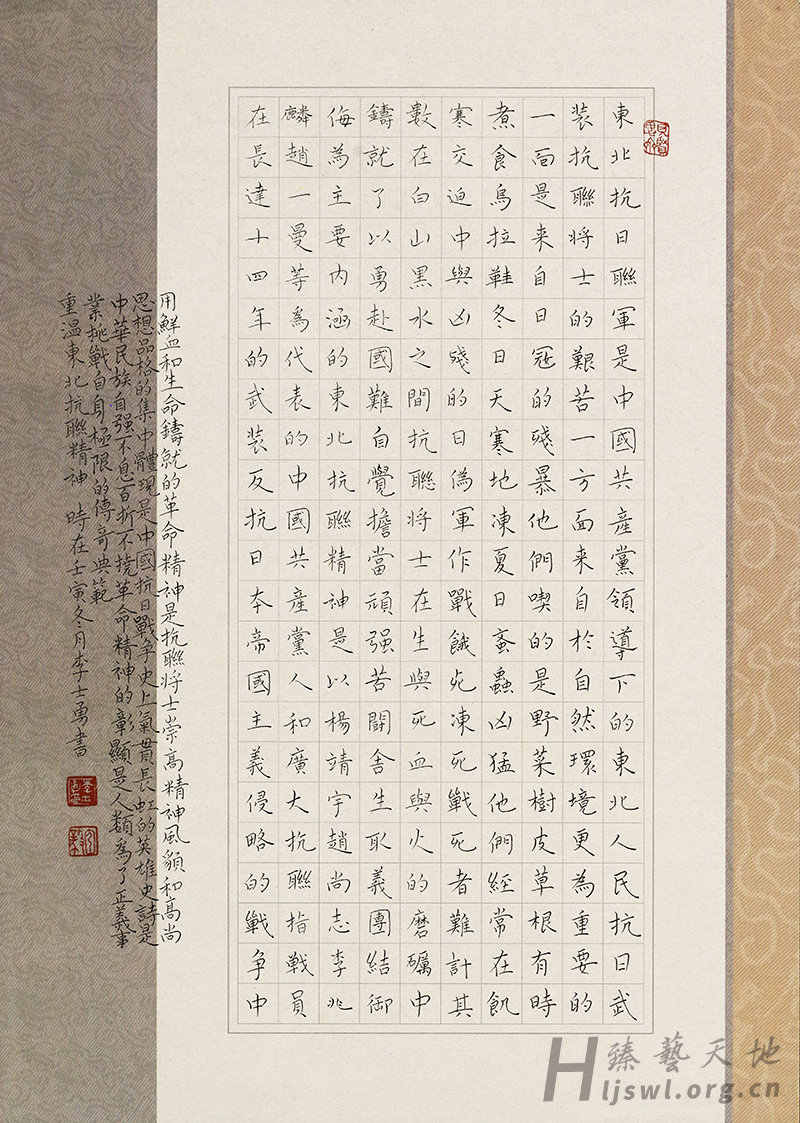 東北抗日聯軍是中國共產黨領導下的東北人民抗日武
装抗聯将士的艱苦一方面来自於自然環境更為重要的
一面是来自日冦的殘暴他們喫的是野菜樹皮草根有時
煮食烏拉鞋冬日天寒地凍夏日蚉蟲凶猛他們經常在飢
寒交迫中與凶殘的日偽軍作戰餓死凍死戰死者難計其
數在白山黑水之間抗聯将士在生與死血與火的磨礪中
鑄就了以勇赴國難自覺擔當頑强苦鬪舍生取義團結御
侮為主要内涵的東北抗聯精神是以楊靖宇趙尚志李兆
麟趙一曼等為代表的中國共產黨人和廣大抗聯指戰員
在長達十四年的武装反抗日本帝國主義侵略的戰争中
用鮮血和生命鑄就的革命精神是抗聯将士崇高精神風貌和高尚
思想品格的集中體現是中國抗日戰争史上氣貫長虹的英雄史詩是
中華民族自强不息百折不撓革命精神的彰顯是人類為了正義事
業挑戰自身極限的傳奇典範
重温東北抗聯精神 時在壬寅冬月李士勇書
臻藝天地
Hljswl.org.cn